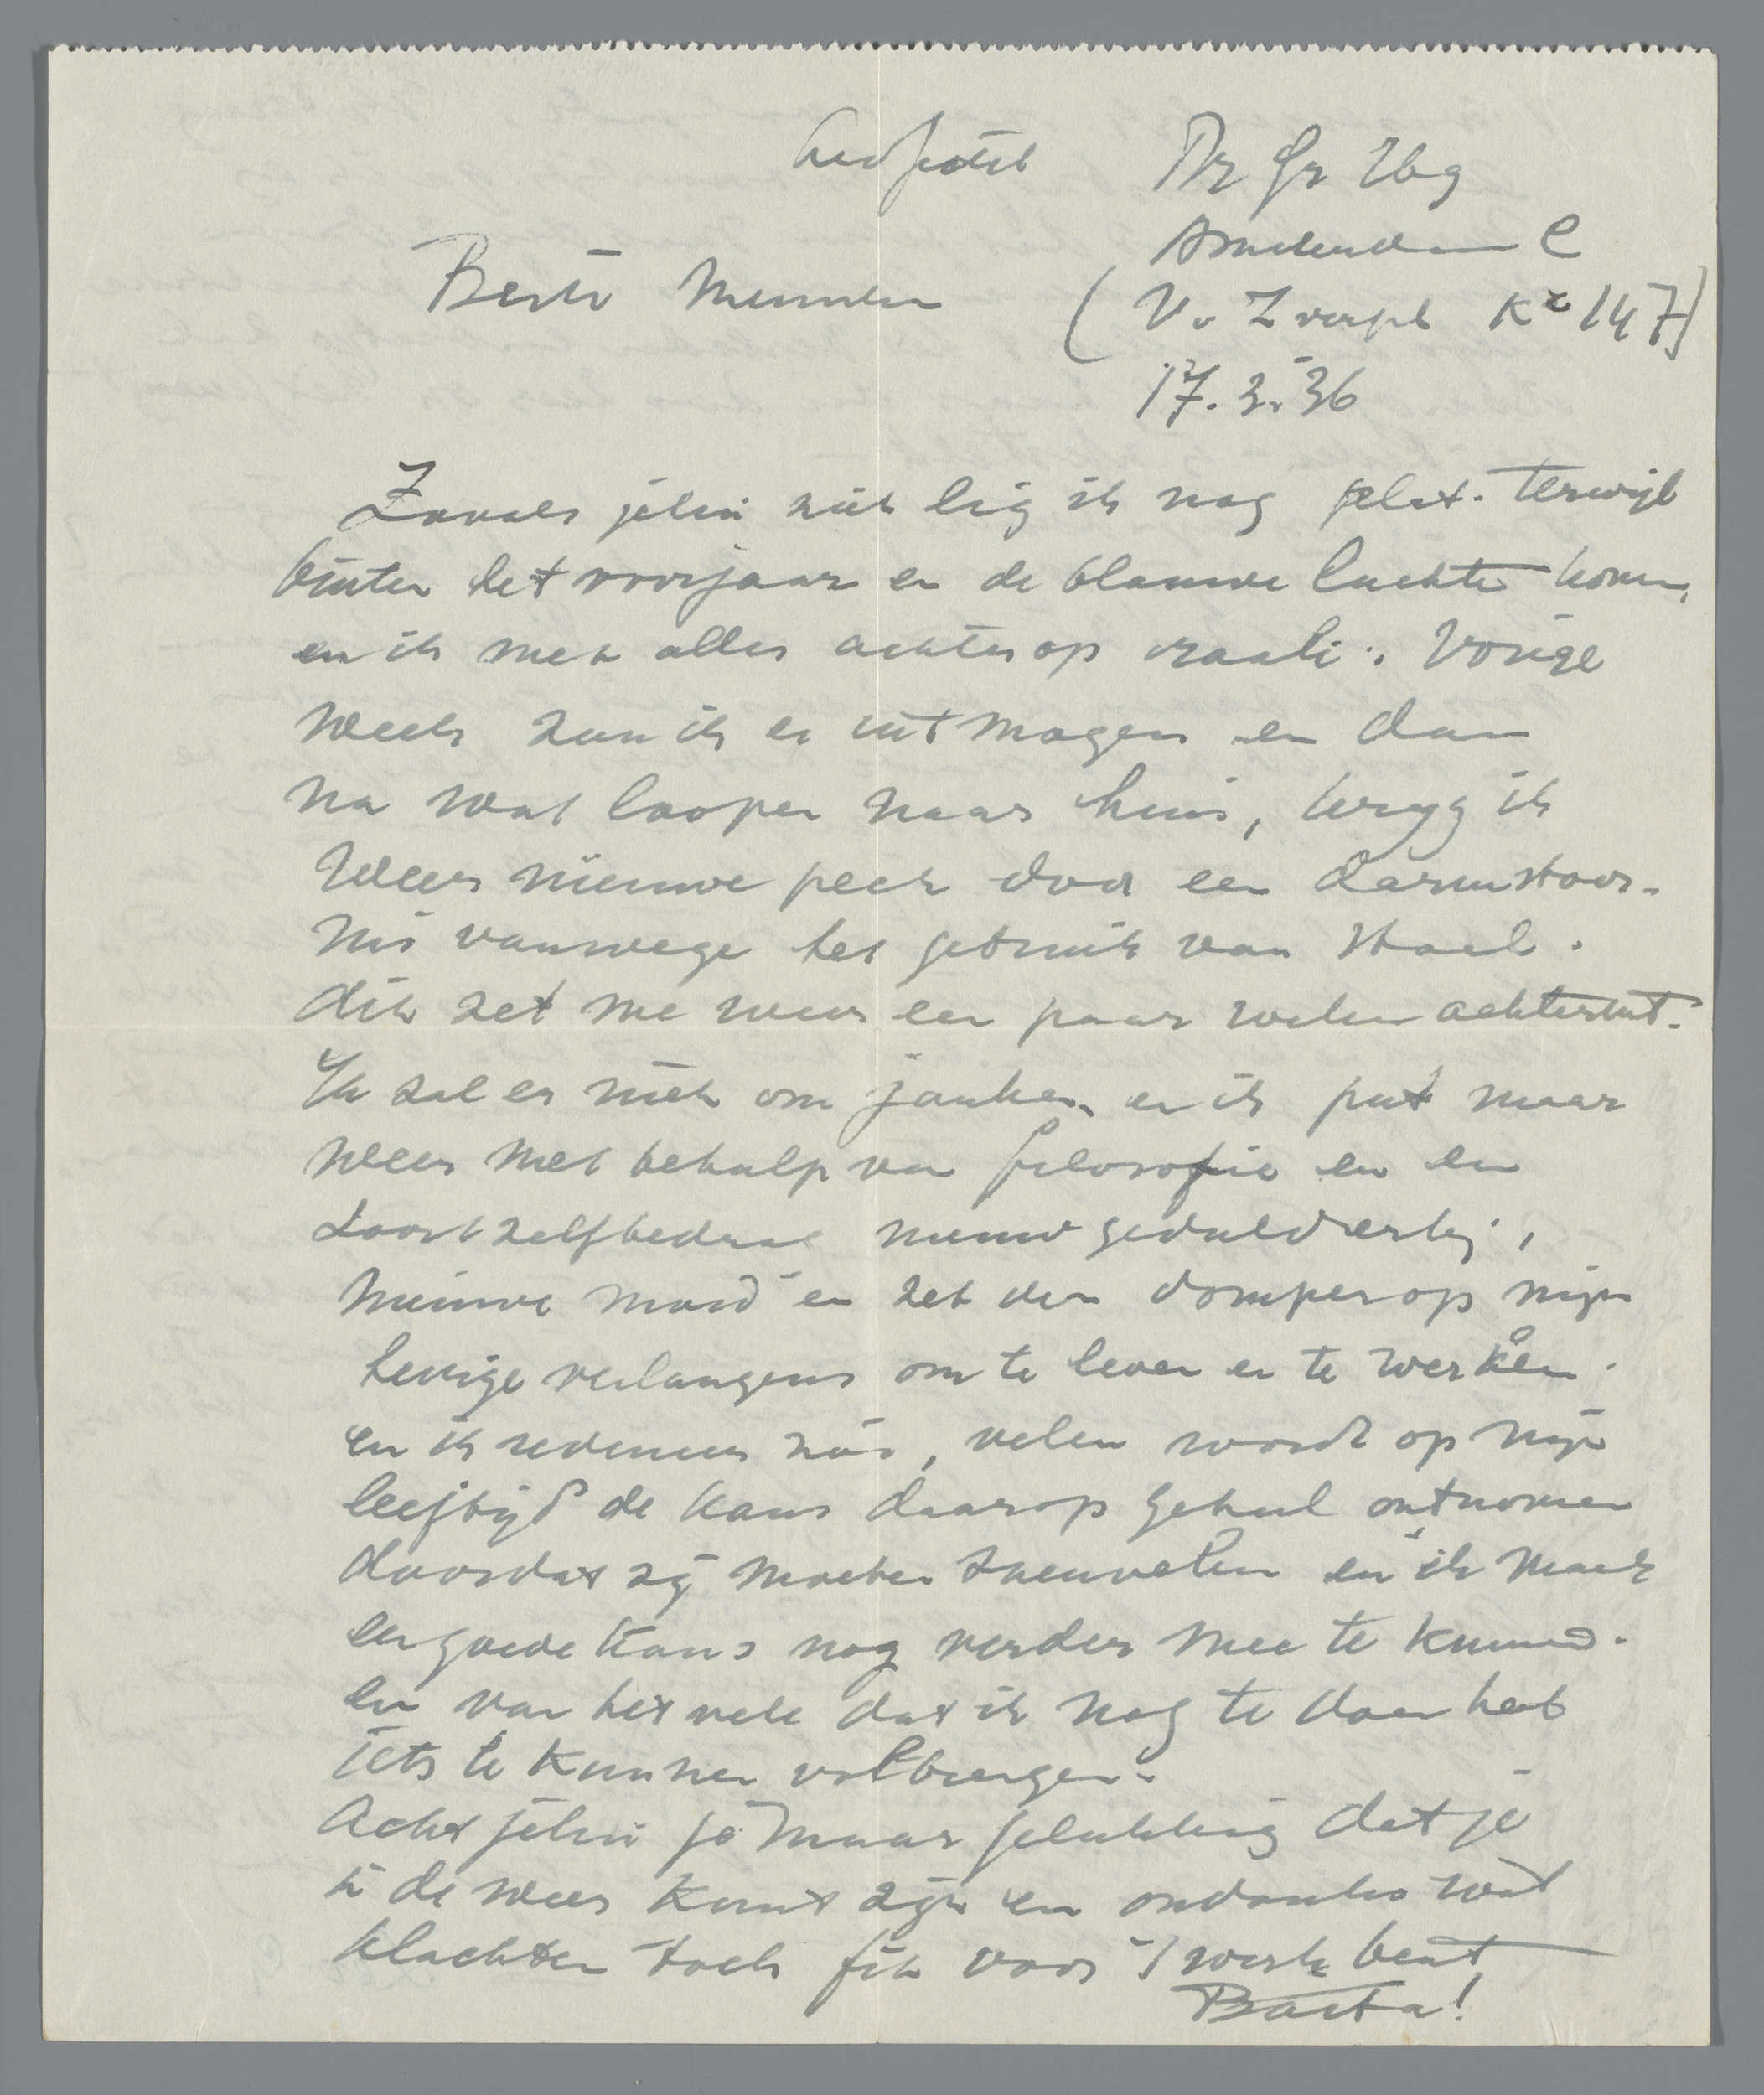 Beste Mensen
Amsterdam C
Kr 147)
17.3.36
Zooals jelui ziet lig ik nog plat. Terwijl
buiten het voorjaar en de blauwe luchten komen,
en ik met alles achterop raak. Vorige
week zou ik er uit mogen en dan
na wat loopen naar huis, kryg ik
weer nieuwe pech door een darmstoor-
nis vanwege het gebruik van staal.
dit zet me weer een paar weken achteruit.
Ik zal er niet om janken en ik put maar
weer met behulp van filosofie en een
soort zelfbedrog nieuw geduld erbij,
nieuwe moed en zet den domper op mijn
hevige verlangens om te leven en te werken.
en ik redeneer zóó, velen wordt op mijn
leeftijd de kans daarop geheel ontnomen
doordat zij moeten sneuvelen en ik maak
een goede kans nog verder mee te kunnen.
en van het vele dat ik nog te doen heb
iets te kunnen volbrengen.
Acht jelui je maar gelukkig dat je
in de weer kunt zijn en ondanks wat
klachten toch fit voor 't werk bent
Basta!